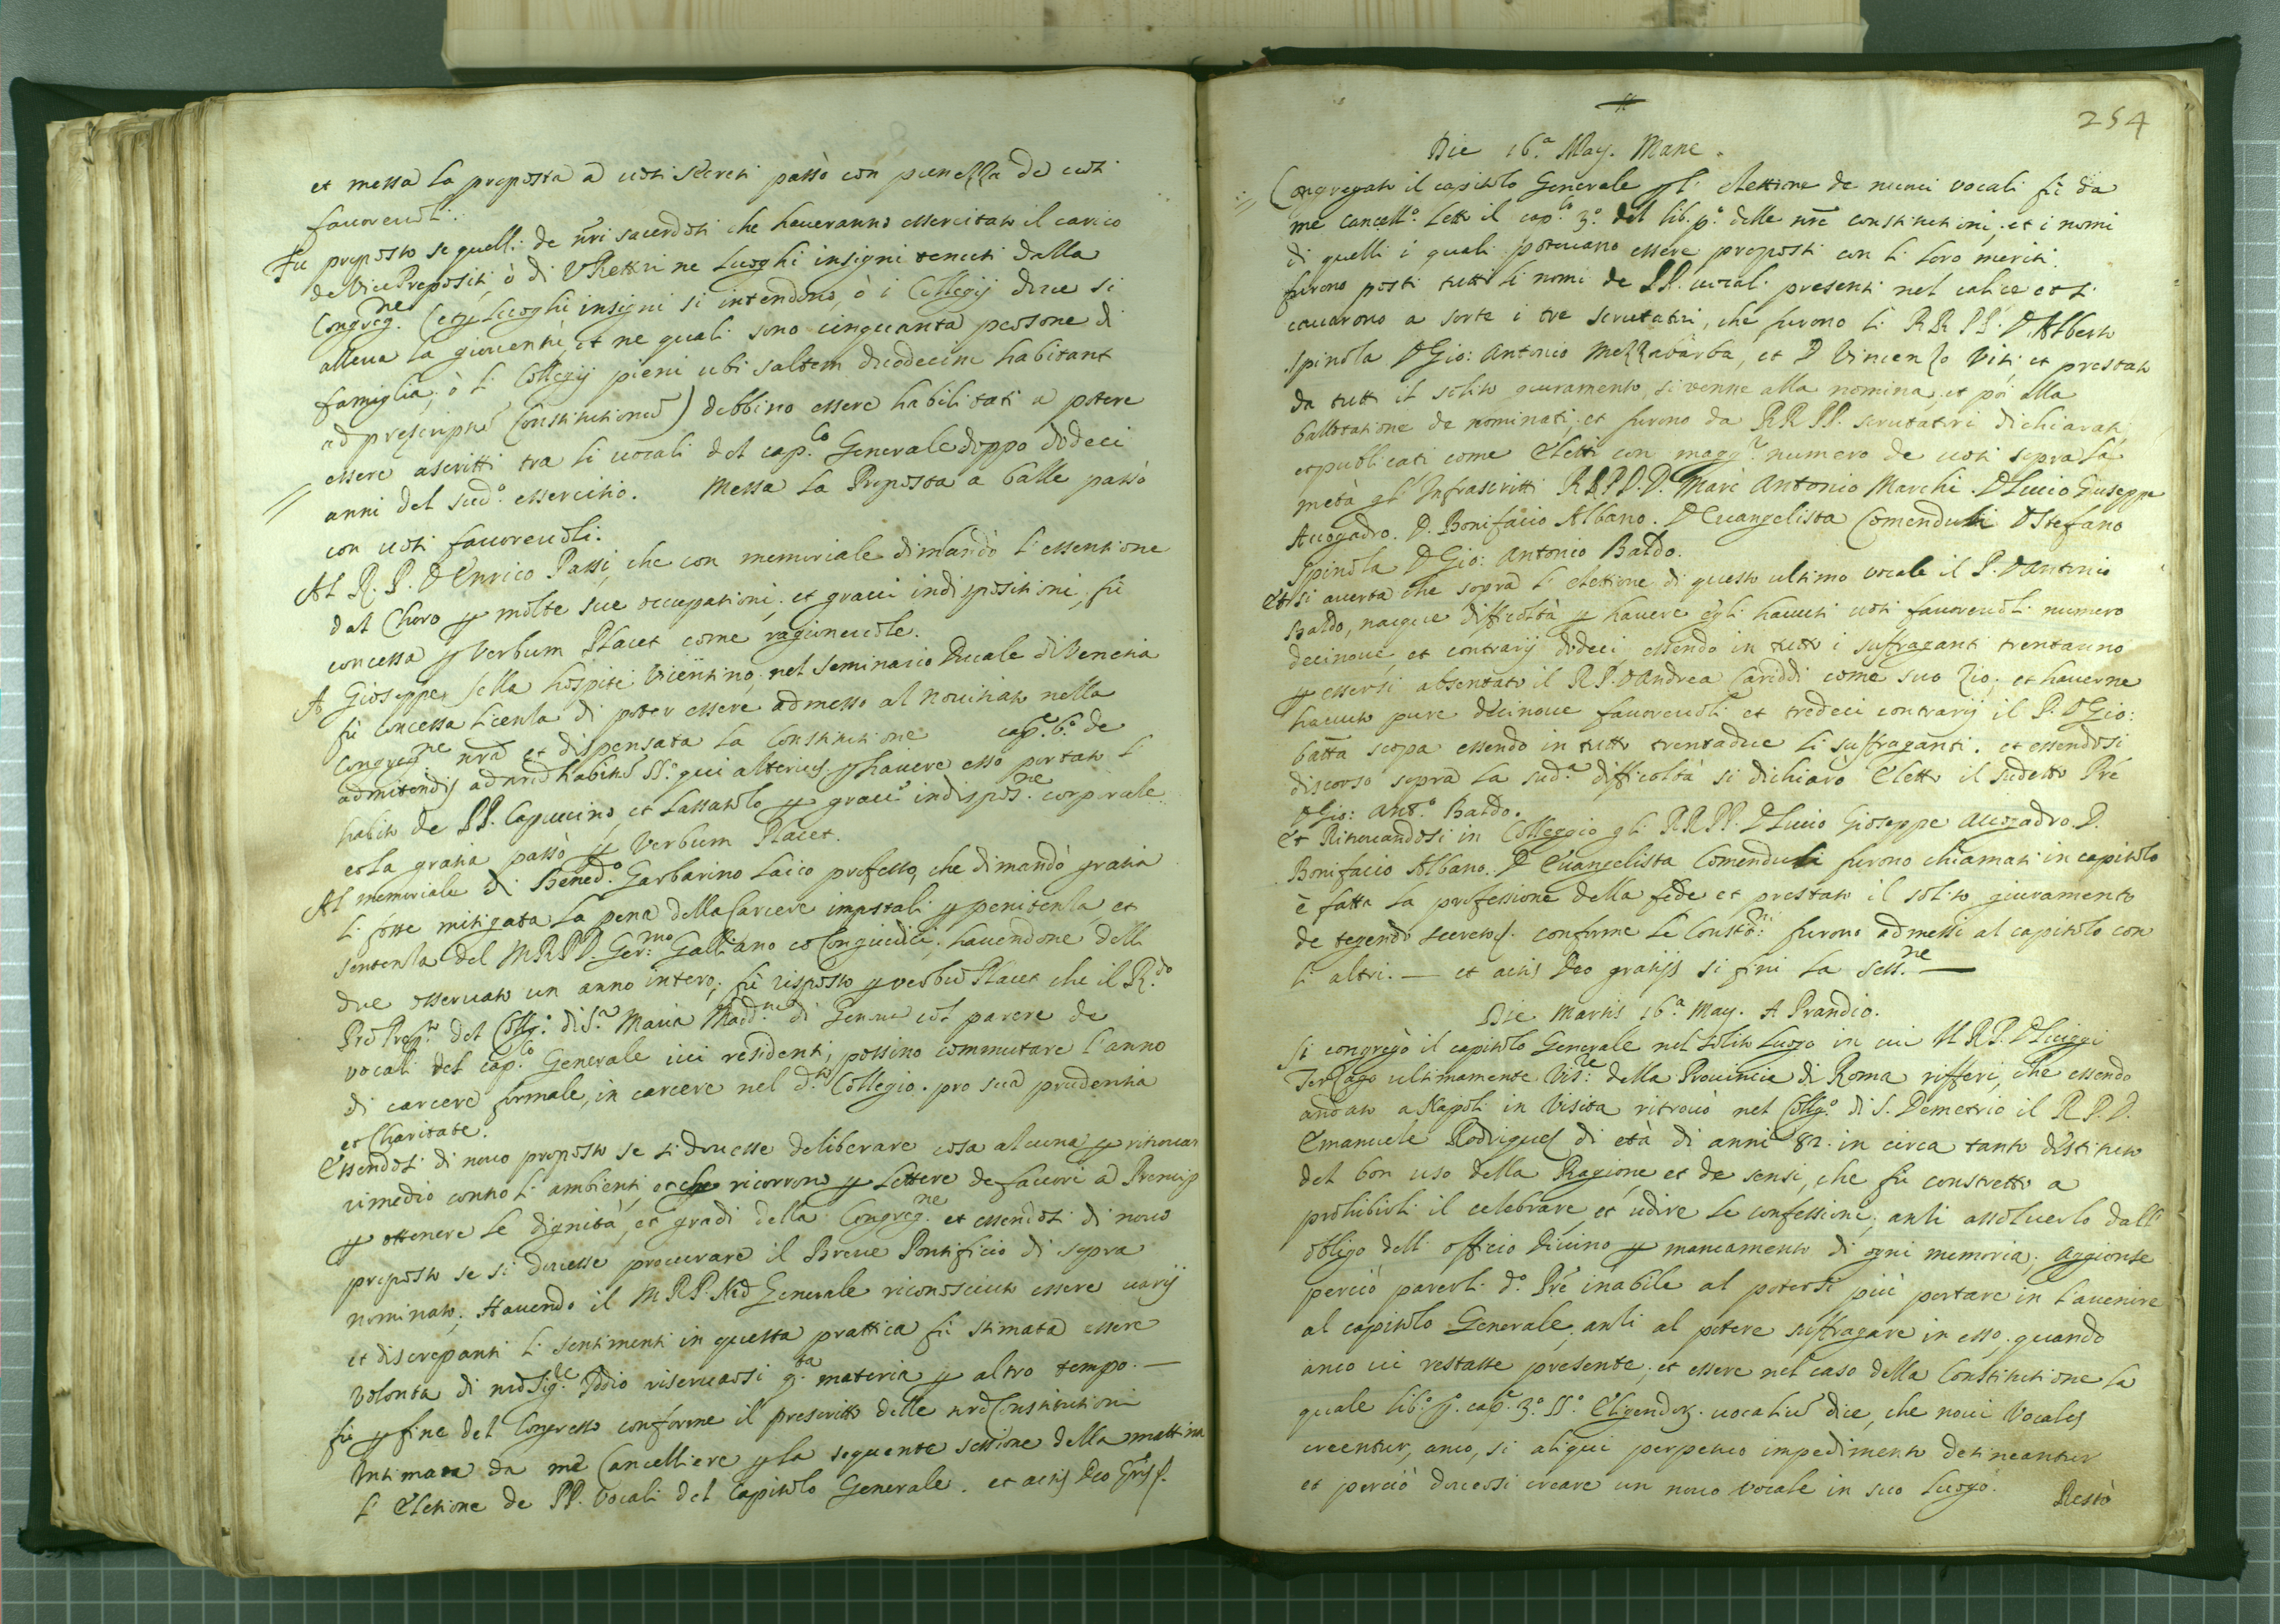 et messa la proposta a uoti secreti passò con pienezza de uoti
fauoreuoli.
Fu proposto se quelli de nri sacerdoti che haueranno essercitato il carico
de Vice Prepositi, ò di VRettori ne Luoghi insigni tenuti dalla
Congreg.ne (et Luoghi insigni si intendono, ò i Collegij doue si
alleua la giouentù, et ne quali sono cinquanta persone di
famiglia, ò li Collegij pieni ubi saltem duodecim habitant
ad prescriptũ Constitutionũ) debbino essere habilitati a potere
essere ascritti tra li uocali del cap.lo Generale doppo dodeci
anni del sud.o essercitio. Messa la Proposta a balle passò
con uoti fauoreuoli.
Al R. P. D Enrico Passi, che con memoriale dimandò l'essentione
dal Choro p molte sue occupationi, et graui indispositioni, fù
concessa p Verbum Placet come ragioneuole.
A Gioseppe Sella hospite Vicentino, nel seminario Ducale di Venetia
fù concessa licenza di poter essere admesso al Nouitiato nella
Congreg.ne nrã et dispensata la Constitutione cap.e 6.o de
admitendis ad nrũ habitũ §.o qui alterius, p hauere esso portato l'
habito de PP. Capuccino, et lassatolo p graui indispos.ne corporale
et la gratia passò p Verbum Placet.
Al memoriale di Bened.o Garbarino Laico professo, che dimandò gratia
li fosse mitigata la pena della Carcere impostali p penitenza, et
sentenza del M R P D. Ger.mo Galliano et Congiudici, hauendone delli
due osseruato un anno intero, fù risposto p verbũ Placet che il R.do
Prẽ Prep.to del Colleg.o di S.a Maria Madd.na di Genoua col parere de
vocali del cap.lo Generale iui residenti, possino commutare l'anno
di carcere formale, in carcere nel d.to Collegio. pro sua prudentia
et Charitate.
Essendosi di nouo proposto se si douesse deliberare cosa alcuna p ritrouar
rimedio contro li ambienti, et che ricorrono p Lettere de fauori a Prencip
p ottenere le dignità, et gradi della Congreg.ne et essendosi di nouo
proposto se si douesse procurare il Breue Pontificio di sopra
nominato. Hauendo il M R P. Nrõ Generale riconosciuto essere uarij
et discrepanti li sentimenti in questa prattica fù stimata essere
volontà di nrõ Sig.re Iddio riseruarsi q.ta materia p altro tempo. —
fù p fine del Congresso conforme il prescritto delle nrẽ Constitutioni
Intimata da me Cancelliere p la seguente sessione della mattina
l'Eletione de PP. Vocali del Capitolo Generale. et actis Deo grãs &.
254
Die 16.a May. Mane.
Congregato il capitolo Generale p l'elettione de nuoui vocali fù da
me Cancell.o Letto il cap.lo 3.o del lib. p.o delle nrẽ constitutioni, et i nomi
di quelli i quali poteuano essere proposti con li loro meriti.
furono posti tutti li nomi de PP. uocali presenti nel calice et si
cauarono a sorte i tre scrutatori, che furono li RR PP. D. Alberto
Spinola D Gio: Antonio Mezzabarba, et D Vincenzo Viti et prestato
da tutti il solito giuramento, si venne alla nomina, et poi alla
ballottatione de nominati, et furono da RR PP. scrutatori dichiarati
et publicati come Eletti con magg.r numero de uoti sopra la
metà gl'Infrascritti RR PP. D. Marc Antonio Marchi. D Lucio Giuseppe
Auogadro. D. Bonifacio Albano. D Euangelista Comenduli D Stefano
Spinola D Gio: Antonio Baldo.
Et si auerta che sopra l'elettione di questo ultimo vocale il P. D Antonio
Baldo, nacque difficoltà p hauere egli hauuti uoti fauoreuoli numero
decinoue, et contrarij dodeci essendo in tutto i suffraganti trentauno
p essersi absentato il R P. D Andrea Cariddi come suo Zio, et hauerne
hauuto pure decinoue fauoreuoli et tredeci contrarij il P. D Gio:
batta scopa essendo in tutto trentadue li suffraganti. et essendosi
discorso sopra la sud.a difficoltà si dichiarò Eletto il sudetto Prẽ
D Gio: Ant.o Baldo.
Et Ritrouandosi in Colleggio gli RR PP. D Lucio Gioseppe Auogadro. D.
Bonifacio Albano. D Euangelista Comenduli furono chiamati in capitolo
è fatta la professione della fede et prestato il solito giuramento
de tegendo secreto &. conforme le Constit.ni furono admessi al capitolo con
li altri. — et actis Deo gratijs si finì la sess.ne —
Die Martis 16.a May. A Prandio.
Si congregò il capitolo Generale nel solito Luogo in cui Il R P. D Luiggi
Terzago ultimamente Vis.re della Prouincia di Roma rifferì, che essendo
andato a Napoli in Visita ritrouò nel Colleg.o di S. Demetrio il R P. D.
Emanuele Rodrigues di età di anni 82. in circa tanto distituto
del bon uso della Ragione et de sensi, che fù constretto a
prohibirli il celebrare et udire le confessioni, anzi assoluerlo dall'
obligo dell' officio Diuino p mancamento di ogni memoria. Aggionse
perciò parerli d.o Prẽ inabile al potersi più portare in l'auenire
al capitolo Generale, anzi al potere suffragare in esso, quando
anco ui restasse presente, et essere nel caso della Constitutione la
quale lib.o p.o cap.e 3.o §.o Eligendor. uocaliũ dice, che noui Vocales
creentur, anco, si aliqui perpetuo impedimento detineantur
et perciò douersi creare un nouo vocale in suo Luogo.
Restò